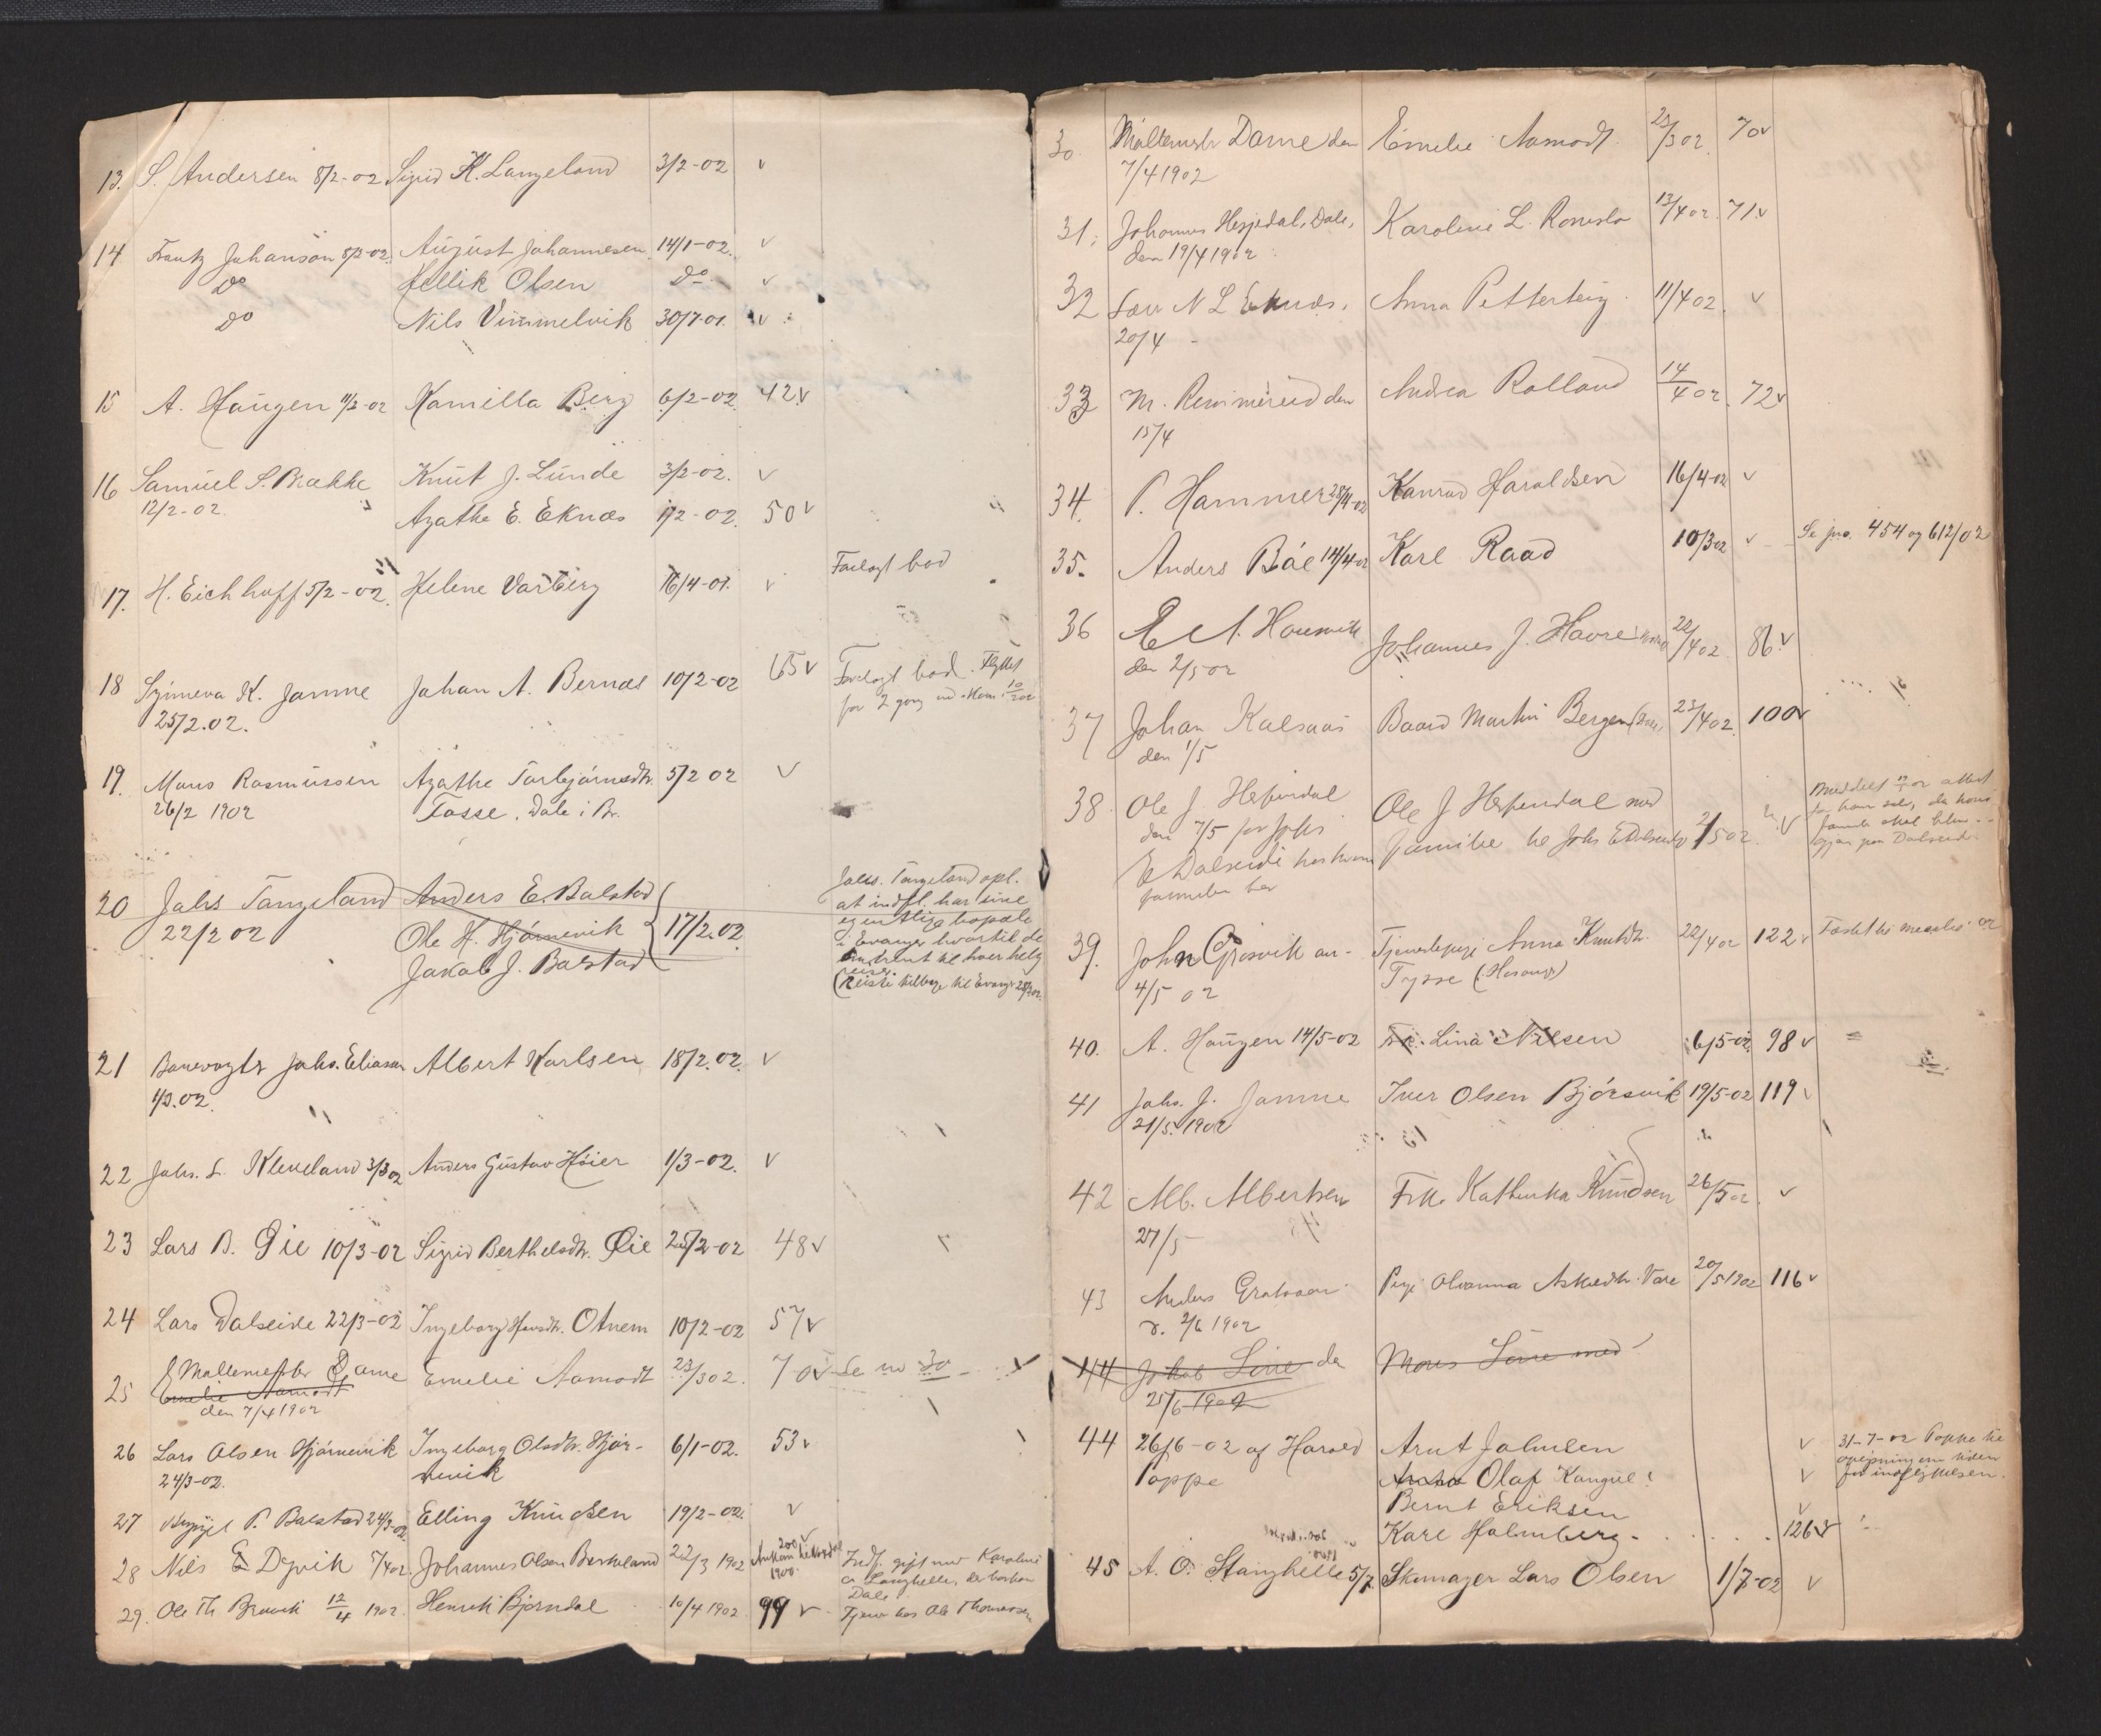 13. S. Andersen 8/2-02 Sigrid K. Langeland 3/2-02 v
14 Frantz Johanson 8/2-02 August Johannesen 14/1-02. v
Do Hellik Olsen Do v
Do Nils Vimmelvik 30/7-01. v
15 A. Haugen 11/2-02 Kamilla Berg 6/2-02. 42 v
16 Samuel S. Brække Knut J. Lunde 3/2-02. v
12/2-02. Agathe E. Eknæs 1/2-02. 50 v
17. H. Eichhoff 5/2-02. Helene Varberg 16/4-01. v Forelagt bod
18 Synneva K. Jamne Johan A. Bernæs 10/2-02 65 v Forelagt bod. Flyttet
25/2.02. for 2 gang
19. Mons Rasmussen Agathe Torbjørnsdtr. 5/2 02 v
26/2 1902 Tosse, Dale i Br.
20 Johs Tangeland Anders E. Bolstad
22/2 02 Ole H. Hjørnevik 17/2.02
Jakob J. Bolstad
Johs. Tangeland opl.
at indfl. har sine
egentlige bopæle
i Evanger hvortil de
omtrent til hver helg
reiser.
(Reiste tilbage til Evanger
21 Banevogter Johs. Eliassen Albert Karlsen 18/2.02. v
1/3.02.
22 Johs. L. Kleveland 3/3 02 Anders Gustav Høier 1/3-02. v
23 Lars B. Øie 10/3-02 Sigrid Berthelsdtr. Øie 25/2-02 48 v
24 Lars Dalseide 22/3-02 Ingeborg Hansdtr. Otnem 10/2-02 57 v
25 Maltemester Dame Emelie Aamodt 23/3 02. 70 v Se no 30
Emelie Aamodt
den 7/4 1902
26 Lars Olsen Hjørnevik Ingeborg Olsdtr. Hjør- 6/1-02. 53 v
24/3-02. nevik
27 P. Bolstad 24/3-02 Elling Knudsen 19/2-02. v
28 Nils E Dyvik 7/4 02. Johannes Olsen Berkeland 22/3 1902 200 v
1900. Indf. gift med Karoline
Langhelle, der
Dale
29. Ole Th Bruvik 12/4 1902. Henrik Bjørndal 10/4 1902 99 v Tjener hos Ole Thomassen
30. Maltemstr Dame den Emelie Aamodt 23/3 02. 70 v
7/4 1902
31. Johannes Hesjedal, Dale, Karoline L. 13/4 02. 71 v
den 19/4 1902
32 Lav N L Eknæs, Anna Petterteig 11/4 02. v
20/4 -
33 M. den Andrea Rolland 14/4 02. 72 v
15/4
34. P. Hammer 28/4-02 Konrad Haraldsen 16/4-02 v
35. Anders Bøe 14/4-02 Karl Raad 10/3 02 v Se jno. 454 og 612/02
36 E A. Housvik Johannes J. Havre 22/4 02 86 v
den 2/5 02
37 Johan Kalsaas Baard Martin Bergem 23/4 02. 100 v
den 1/5
38. Ole J. Ole J med 2/5 02. v
den 7/5 for Johs familie
E Dalseide hos hvem
familien bor
39. John Gjøsvik an- Tjenestepige Anna Knutsdtr. 22/4 02 122 v
4/5 02 Tysse (Hosanger)
40. A. Haugen 14/5-02 Frk. Lina Nilsen 6/5-02. 98 v
41 Johs. J. Jamne Iver Olsen Bjørsvik 19/5-02 119 v
21/5. 1902
42 Alb. Albertsen Frk. Kathinka Knudsen 26/5 02. v
27/5
43 Anders Pige Olianna Askedtr. Vare 20/5 1902 116 v
d. 2/6 1902
44 Jakob Lone den Mons Lone med
25/6 1902
44 26/6-02 af Harald Arnt Johnsen v 31-7-02 Poppe
Poppe Olaf v
Bernt Eriksen v
Karl Holmberg 126 v
45 A. O. Stanghelle 5/7. Skomager Lars Olsen 1/7-02 v